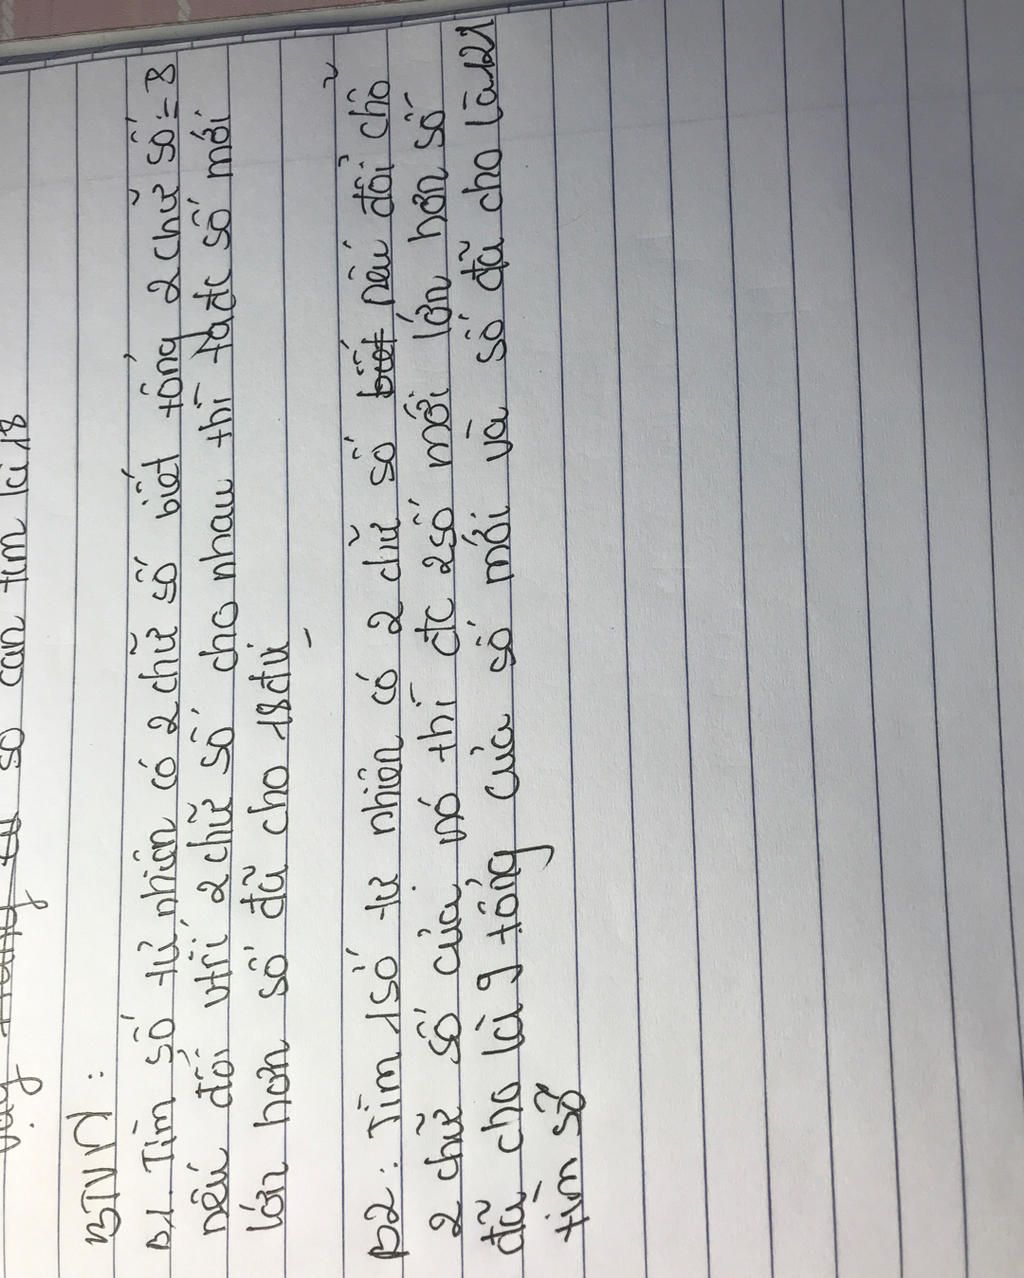 số cần tìm là 18
BTVN:
B1. Tìm số tự nhiên có 2 chữ số biết tổng 2 chữ số = 8
nếu đổi vtrí 2 chữ số cho nhau thì ta đc số mới
lớn hơn số đã cho 18 đvị
B2: Tìm 1 số tự nhiên có 2 chữ số biết nếu đổi chỗ
2 chữ số của nó thì đc 2 số mới lớn hơn số
đã cho là 9 tổng của số mới và số đã cho là 121
tìm số